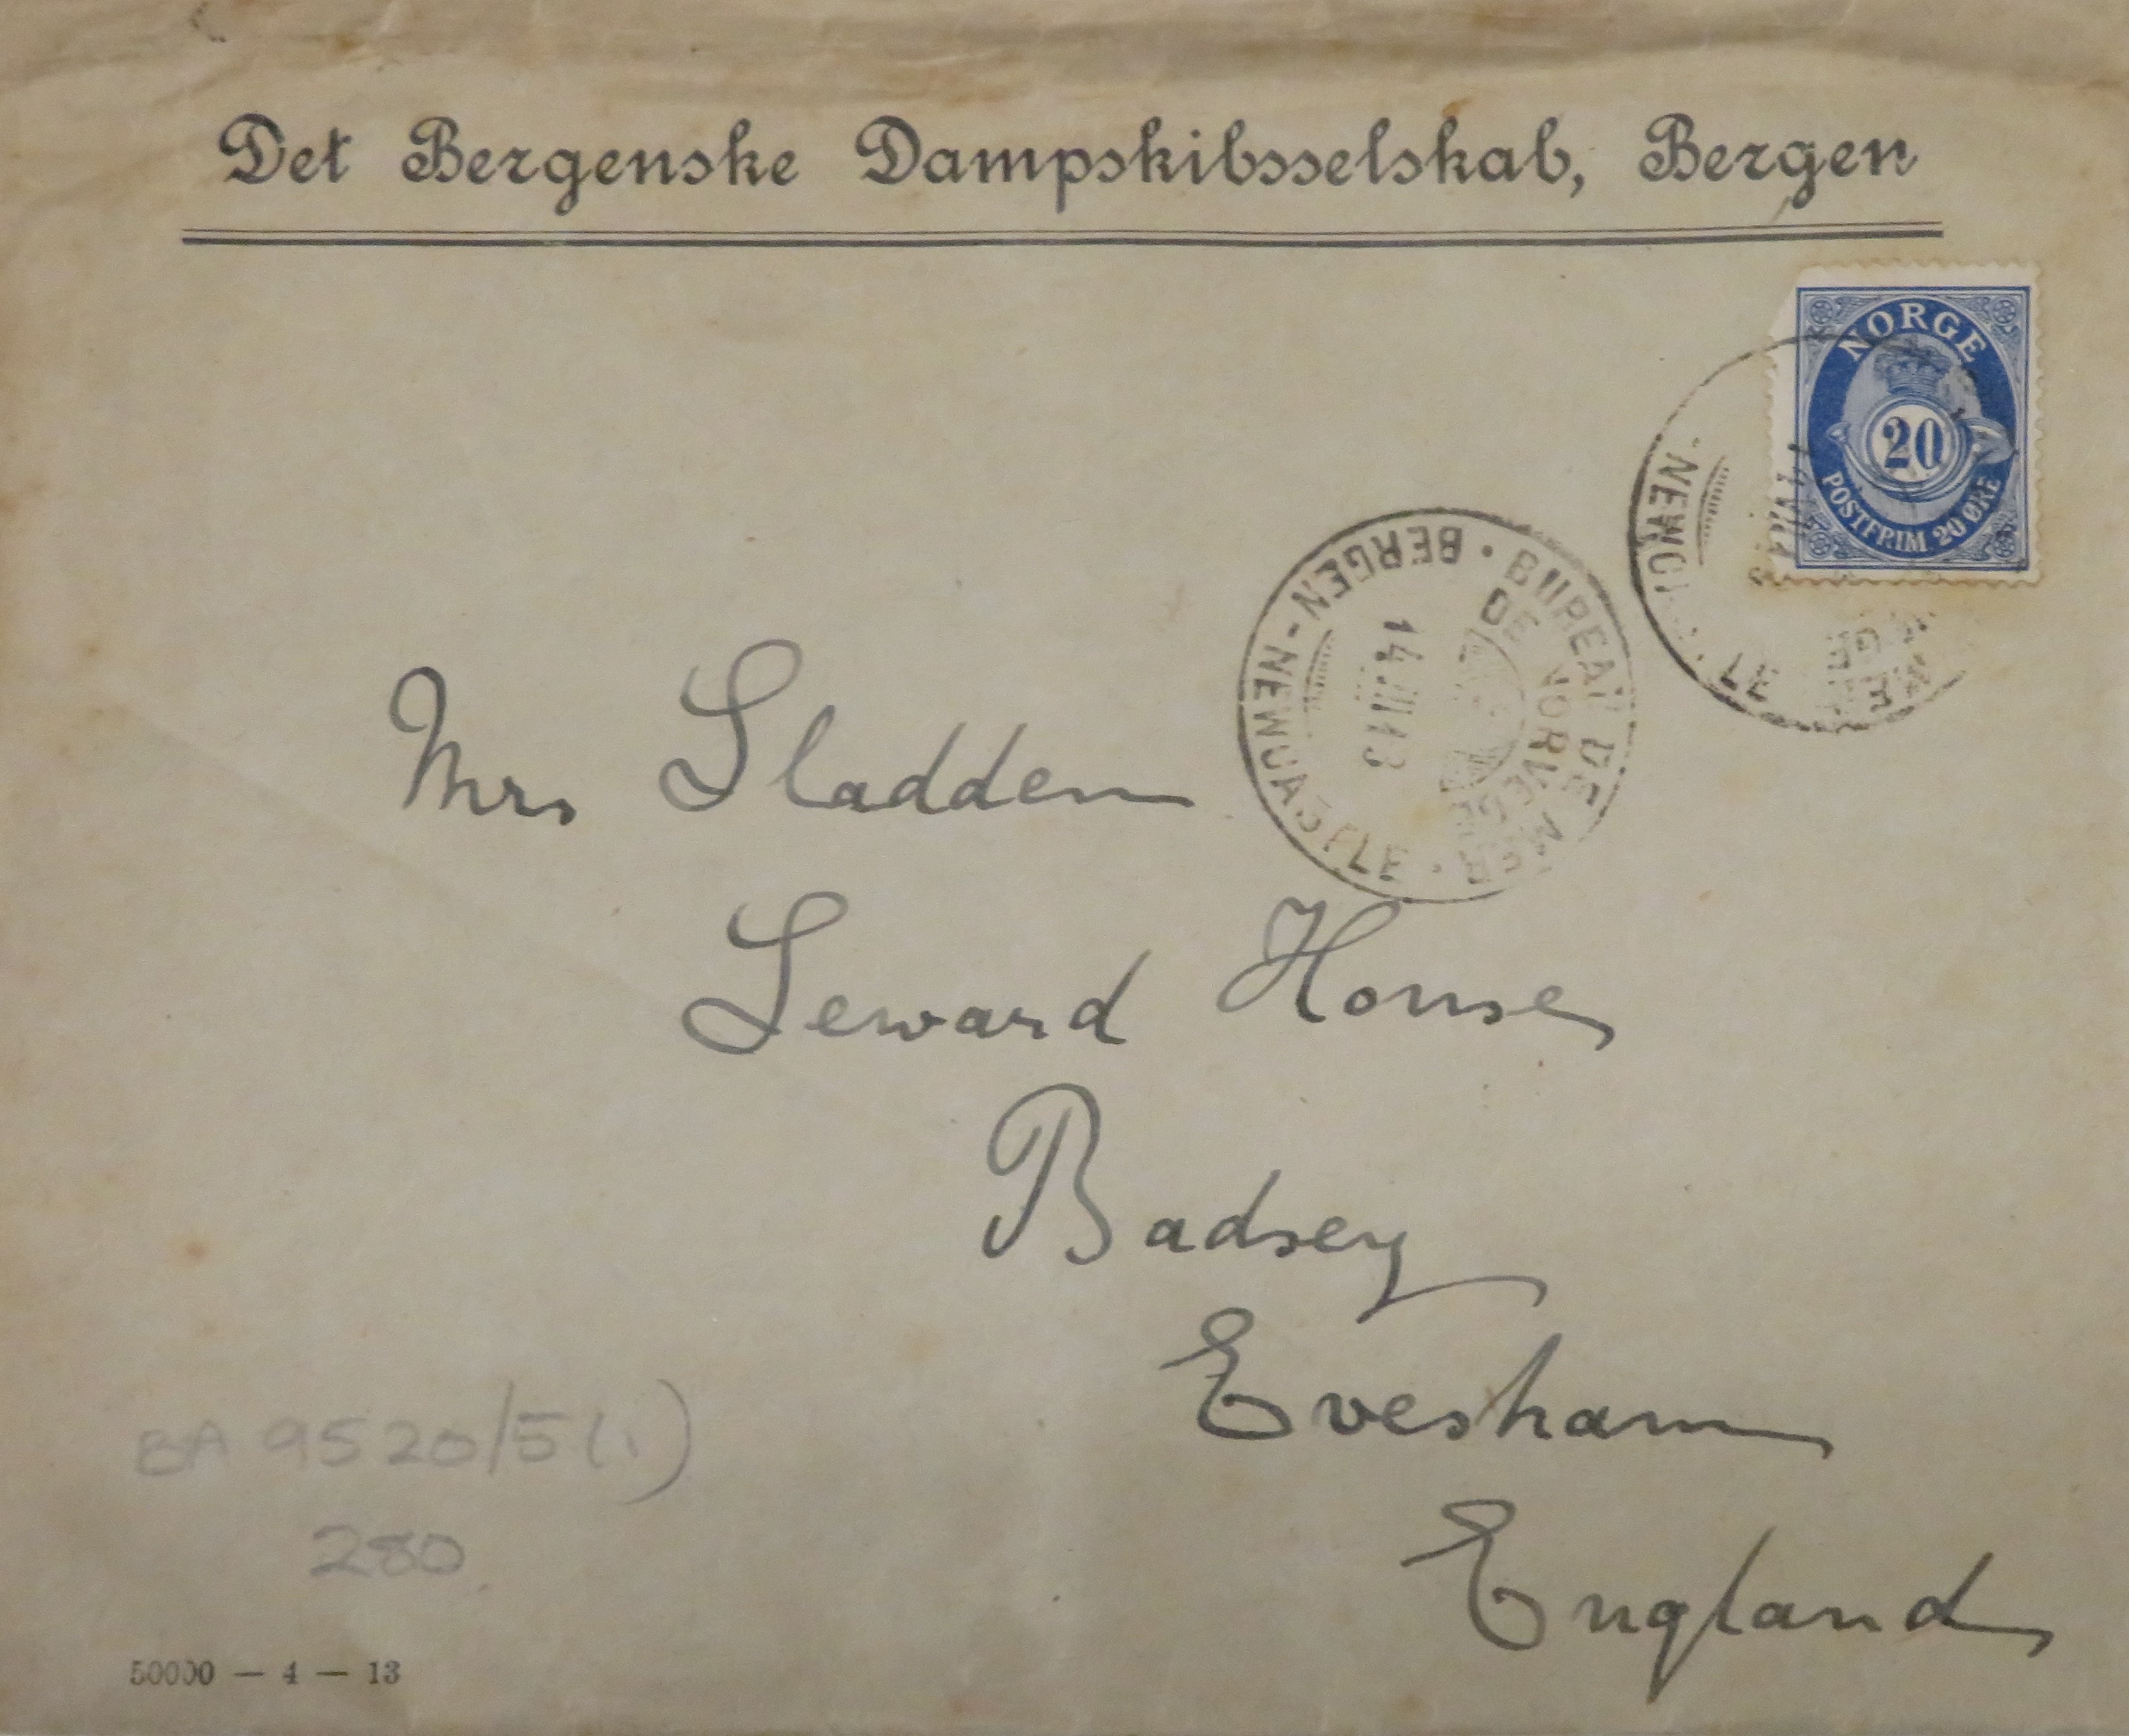 Det Bergenske Dampskibsselskab, Bergen
NORGE
20
POSTFRIM. 20 ØRE
BUREAU DE MER
DE NORVEGE
14 VII 13
BERGEN-NEWCASTLE
Mrs Sladden
Seward House
Badsey
Evesham
England
BA 9520/5(i)
280
50000 — 4 — 13